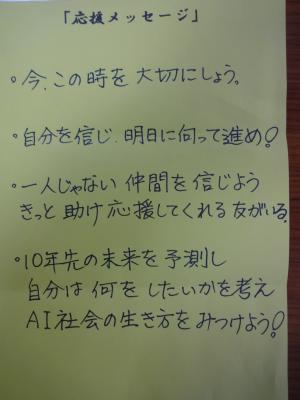 「応援メッセージ」
・今、この時を大切にしよう。
・自分を信じ、明日に向って進め!
・一人じゃない 仲間を信じよう
きっと助け応援してくれる友がいる。
・10年先の未来を予測し
自分は何をしたいかを考え
AI社会の生き方をみつけよう!